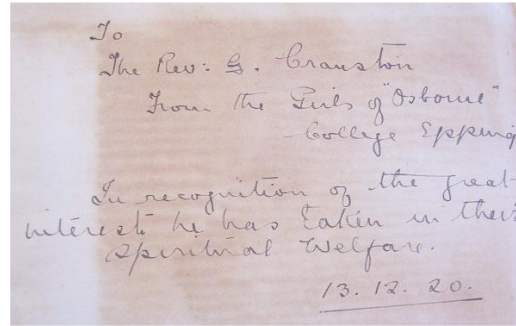 To
The Rev: G. Cranston
From the Girls of "Osborne"
College Epping
In recognition of the great
interest he has taken in their
spiritual Welfare.
13. 12. 20.